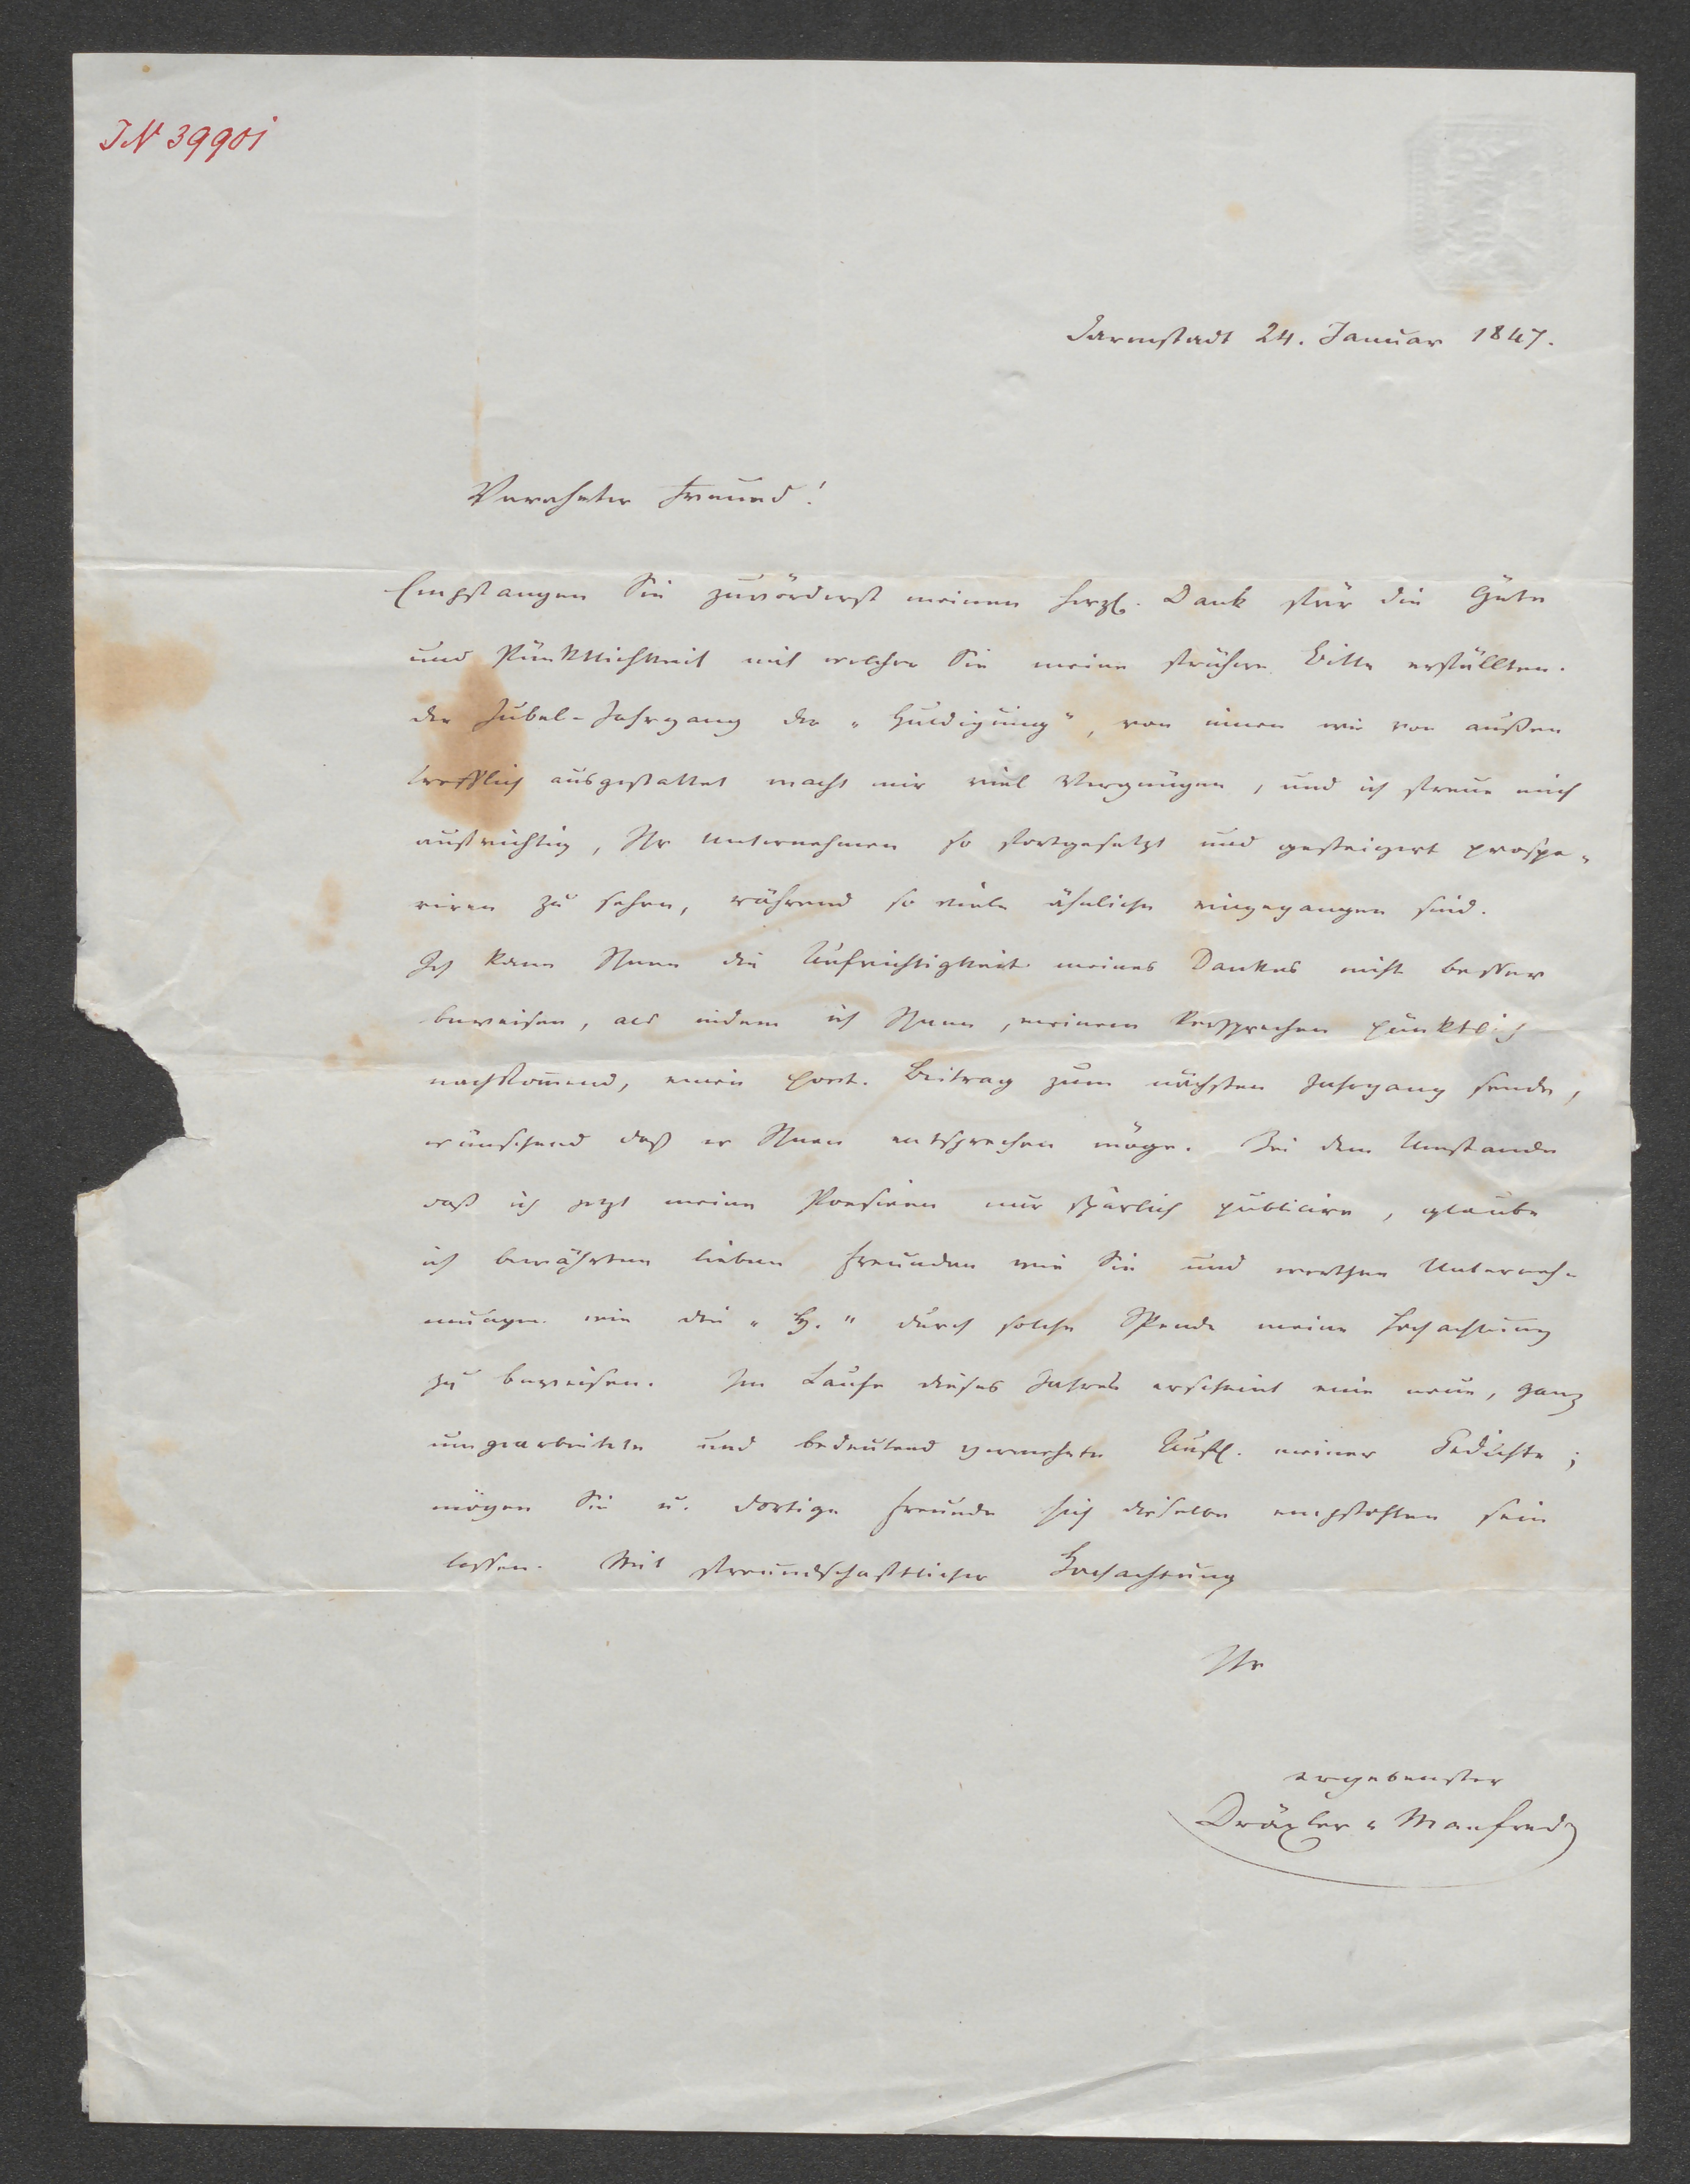 IN 39901
Darmstadt 24. Januar 1847.
Verehrter Freund!
Empfangen Sie zuvörderst meinen herzl. Dank für die Güte
und Pünktlichkeit mit welcher Sie meine frühere Bitte erfüllten.
der Jubel-Jahrgang der „Huldigung“, von innen wie von außen
trefflich ausgestattet macht mir viel Vergnügen, und ich freue mich
aufrichtig, Ihr Unternehmen so fortgesetzt und gesteigert prospe-
riren zu sehen, während so viele ähnliche eingegangen sind.
Ich kann Ihnen die Aufrichtigkeit meines Dankes nicht besser
beweisen, als indem ich Ihnen, meinem Versprechen pünktlich
nachkomend, einen poet. Beitrag zum nächsten Jahrgang sende,
wünschend daß er Ihnen entsprechen möge. Bei dem Umstande
daß ich jetzt meine Poesieen nur spärlich publicire, glaube
ich bewährten lieben Freunden wie Sie und werthen Unterneh-
mungen wie die „H.“ durch solche Spende meine Hochachtung
zu beweisen. Im Laufe dieses Jahres erscheint eine neue, ganz
umgearbeitete und bedeutend vermehrte Aufl. meiner Gedichte;
mögen Sie u. dortige Freunde sich dieselbe empfohlen sein
lassen. Mit freundschaftlicher Hochachtung
Ihr
ergebenster
Dräxler-Manfred